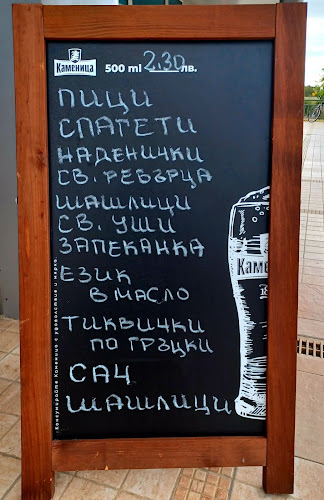 Каменица
500 ml 2.30 лв.
ПИЦИ
СПАГЕТИ
НАДЕНИЧКИ
СВ. РЕБЪРЦА
ШАШЛИЦИ
СВ. УШИ
ЗАПЕКАНКА
ЕЗИК
В МАСЛО
ТИКВИЧКИ
ПО ГРЪЦКИ
САЧ
ШАШЛИЦИ
Каме
Консумирайте Каменица с удоволствие и мярка.